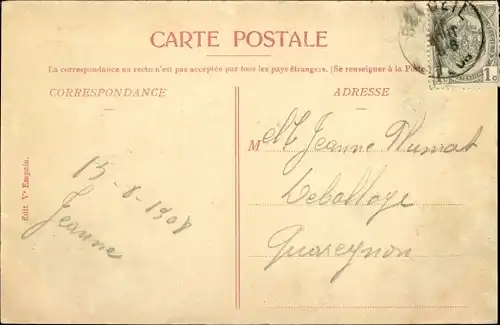 CARTE POSTALE
La correspondance au recto n'est pas acceptée par tous les pays étrangers. (Se renseigner à la Poste
CORRESPONDANCE
ADRESSE
Edit. Vᵉ Empain.
15-8-1908
Jeanne
M Jeanne
Quaregnon
1c